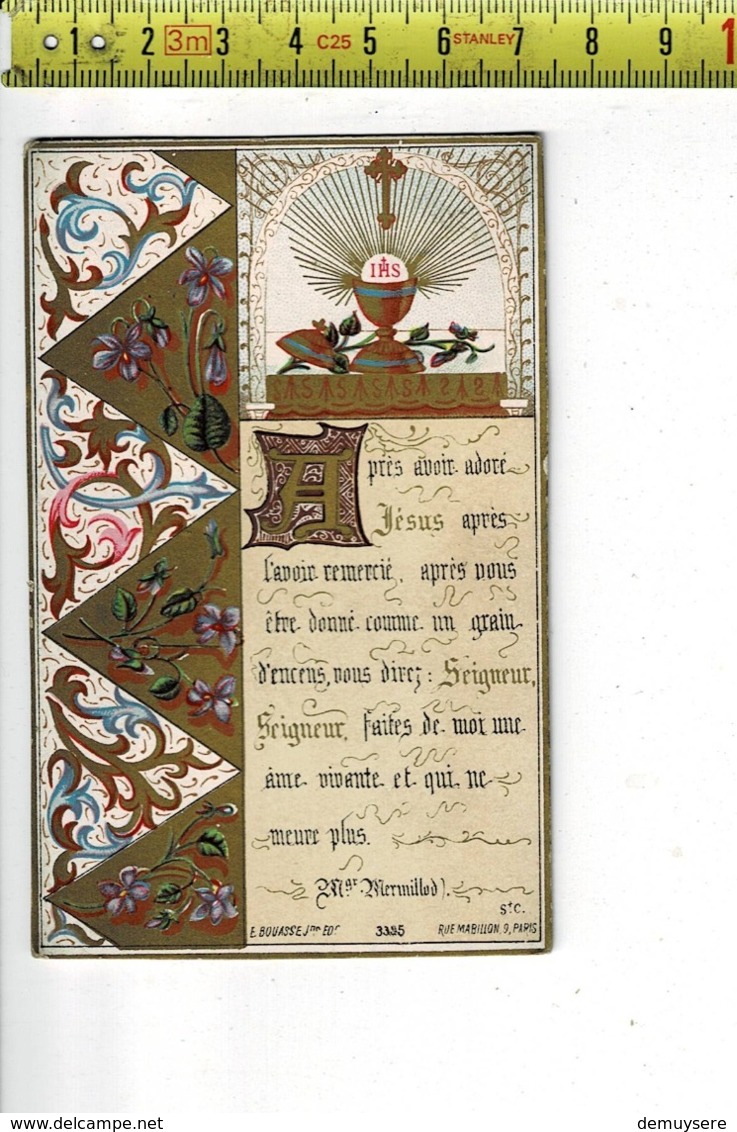 1 2 3m 3 4 C25 5 6 STANLEY 7 8 9 1
IHS
Après avoir adoré
Jésus après
l'avoir remercié, après vous
être donné comme un grain
d'encens, vous direz: Seigneur,
Seigneur, faites de moi une
âme vivante et qui ne
meure plus.
Mgr Mermillod).
Ste C.
E. BOUASSE Jne EDr 3395 RUE MABILLON, 9, PARIS
delcampe.net
demuysere